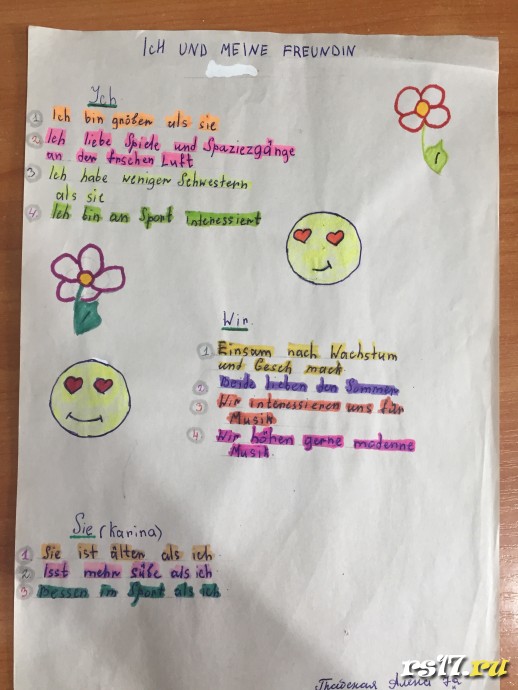 ICH UND MEINE FREUNDIN
Ich
1 Ich bin größer als sie
2 Ich liebe Spiele und Spaziezgänge
an der frischen Luft
3 Ich habe weniger Schwestern
als sie
4. Ich bin an Sport interessiert
Wir
1 Einsam nach Wachstum
und Gesch mack
2 Beide lieben den Sommer
3 Wir interessieren uns für
Musik
4 Wir höhen gerne moderne
Musik
Sie (Karina)
1 Sie ist älter als ich
2 Isst mehr süße als ich
3 Besser im Sport als ich
Алена 7а
rs17.ru